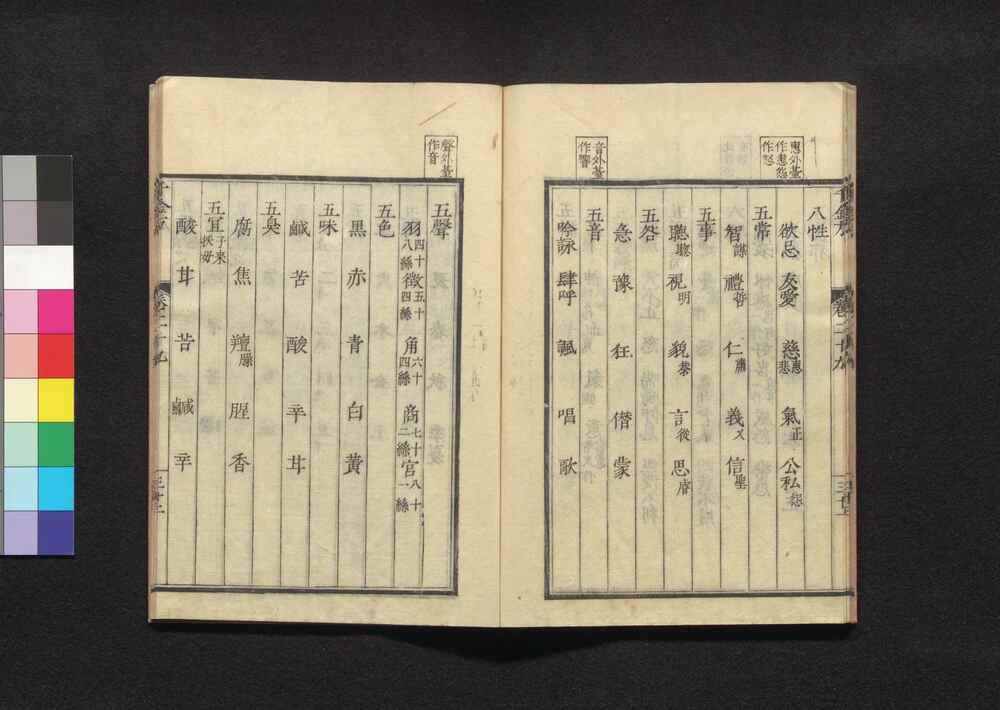 惠外臺
作恚怨
作怒
八性
欲忌 友愛 慈惠悲 氣正 公私怨
五常
智謀 禮哲 仁肅 義乂 信聖
五事
聽聰 視明 貌恭 言從 思睿
五咎
急 豫 狂 僭 蒙
音外臺
作響
五音
吟詠 肆呼 諷 唱 歌
聲外臺
作音
五聲
羽四十八絲 徵五十四絲 角六十四絲 商七十二絲 宮八十一絲
五色
黑 赤 青 白 黃
五味
鹹 苦 酸 辛 甘
五臭
腐 焦 羶臊 腥 香
五宜子來扶母
酸 甘 苦 鹹 辛